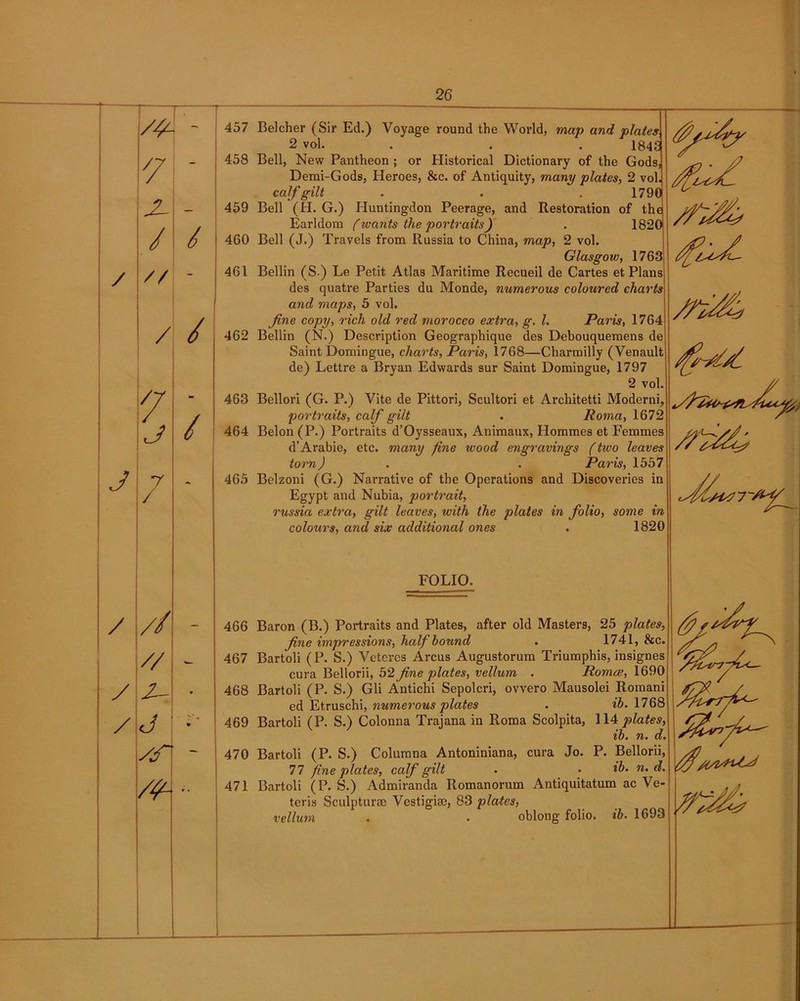 26
14 - 457 Belcher (Sir Ed.) Voyage round the World, map and plates,
2 vol. . . . 1843
7 - 458 Bell, New Pantheon ; or Historical Dictionary of the Gods,
Demi-Gods, Heroes, &c. of Antiquity, many plates, 2 vol.
calf gilt . . . 1790
2 - 459 Bell (H. G.) Huntingdon Peerage, and Restoration of the
Earldom (wants the portraits) . 1820
1 6 460 Bell (J.) Travels from Russia to China, map, 2 vol.
Glasgow, 1763
1 11 - 461 Bellin (S.) Le Petit Atlas Maritime Recueil de Cartes et Plans
des quatre Parties du Monde, numerous coloured charts
and maps, 5 vol.
fine copy, rich old red morocco extra, g. l. Paris, 1764
1 6 462 Bellin (N.) Description Geographique des Debouquemens de
Saint Domingue, charts, Paris, 1768—Charmilly (Venault
de) Lettre a Bryan Edwards sur Saint Domingue, 1797
2 vol.
7 - 463 Bellori (G. P.) Vite de Pittori, Scultori et Architetti Moderni,
portraits, calf gilt . Roma, 1672
3 6 464 Belon (P.) Portraits d'Oysseaux, Animaux, Hommes et Femmes
d'Arabie, etc. many fine wood engravings (two leaves
torn) . . Paris, 1557
3 7 - 465 Belzoni (G.) Narrative of the Operations and Discoveries in
Egypt and Nubia, portrait,
russia extra, gilt leaves, with the plates in folio, some in
colours, and six additional ones . 1820
FOLIO.
466 Baron (B.) Portraits and Plates, after old Masters, 25 plates,
fine impressions, half bound . 1741, &c.
11 - 467 Bartoli (P. S.) Veteres Arcus Augustorum Triumphis, insignes
cura Bellorii, 52 fine plates, vellum . Romæ, 1690
1 2 - 468 Bartoli (P. S.) Gli Antichi Sepolcri, ovvero Mausolei Romani
ed Etruschi, numerous plates . ib. 1768
1 3 - 469 Bartoli (P. S.) Colonna Trajana in Roma Scolpita, 114 plates,
ib. n. d.
15 - 470 Bartoli (P. S.) Columna Antoniniana, cura Jo. P. Bellorii,
77 fine plates, calf gilt . . ib. n. d.
14 - 471 Bartoli (P. S.) Admiranda Romanorum Antiquitatum ac Ve-
teris Sculpturæ Vestigiæ, 83 plates,
vellum . . oblong folio. ib. 1693